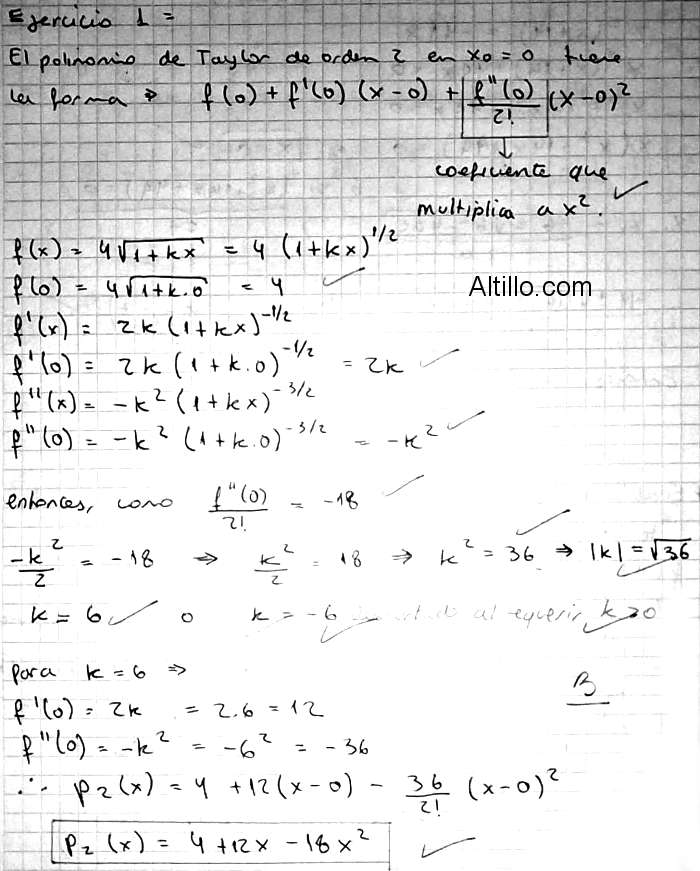 Ejercicio 1 =
El polinomio de Taylor de orden 2 en x₀ = 0 tiene
la forma → f(0) + f'(0) (x-0) + f''(0)/2! (x-0)²
coeficiente que
multiplica a x².
f(x) = 4√(1+kx) = 4 (1+kx)^(1/2)
f(0) = 4√(1+k.0) = 4
Altillo.com
f'(x) = 2k (1+kx)^(-1/2)
f'(0) = 2k (1+k.0)^(-1/2) = 2k
f''(x) = -k² (1+kx)^(-3/2)
f''(0) = -k² (1+k.0)^(-3/2) = -k²
entonces, como f''(0)/2! = -18
-k²/2 = -18 ⇒ k²/2 = 18 ⇒ k² = 36 ⇒ |k| = √36
k = 6 o k = -6 al requerir k>0
para k = 6 ⇒
B
f'(0) = 2k = 2.6 = 12
f''(0) = -k² = -6² = -36
∴ P₂(x) = 4 + 12(x-0) - 36/2! (x-0)²
P₂(x) = 4 + 12x - 18x²